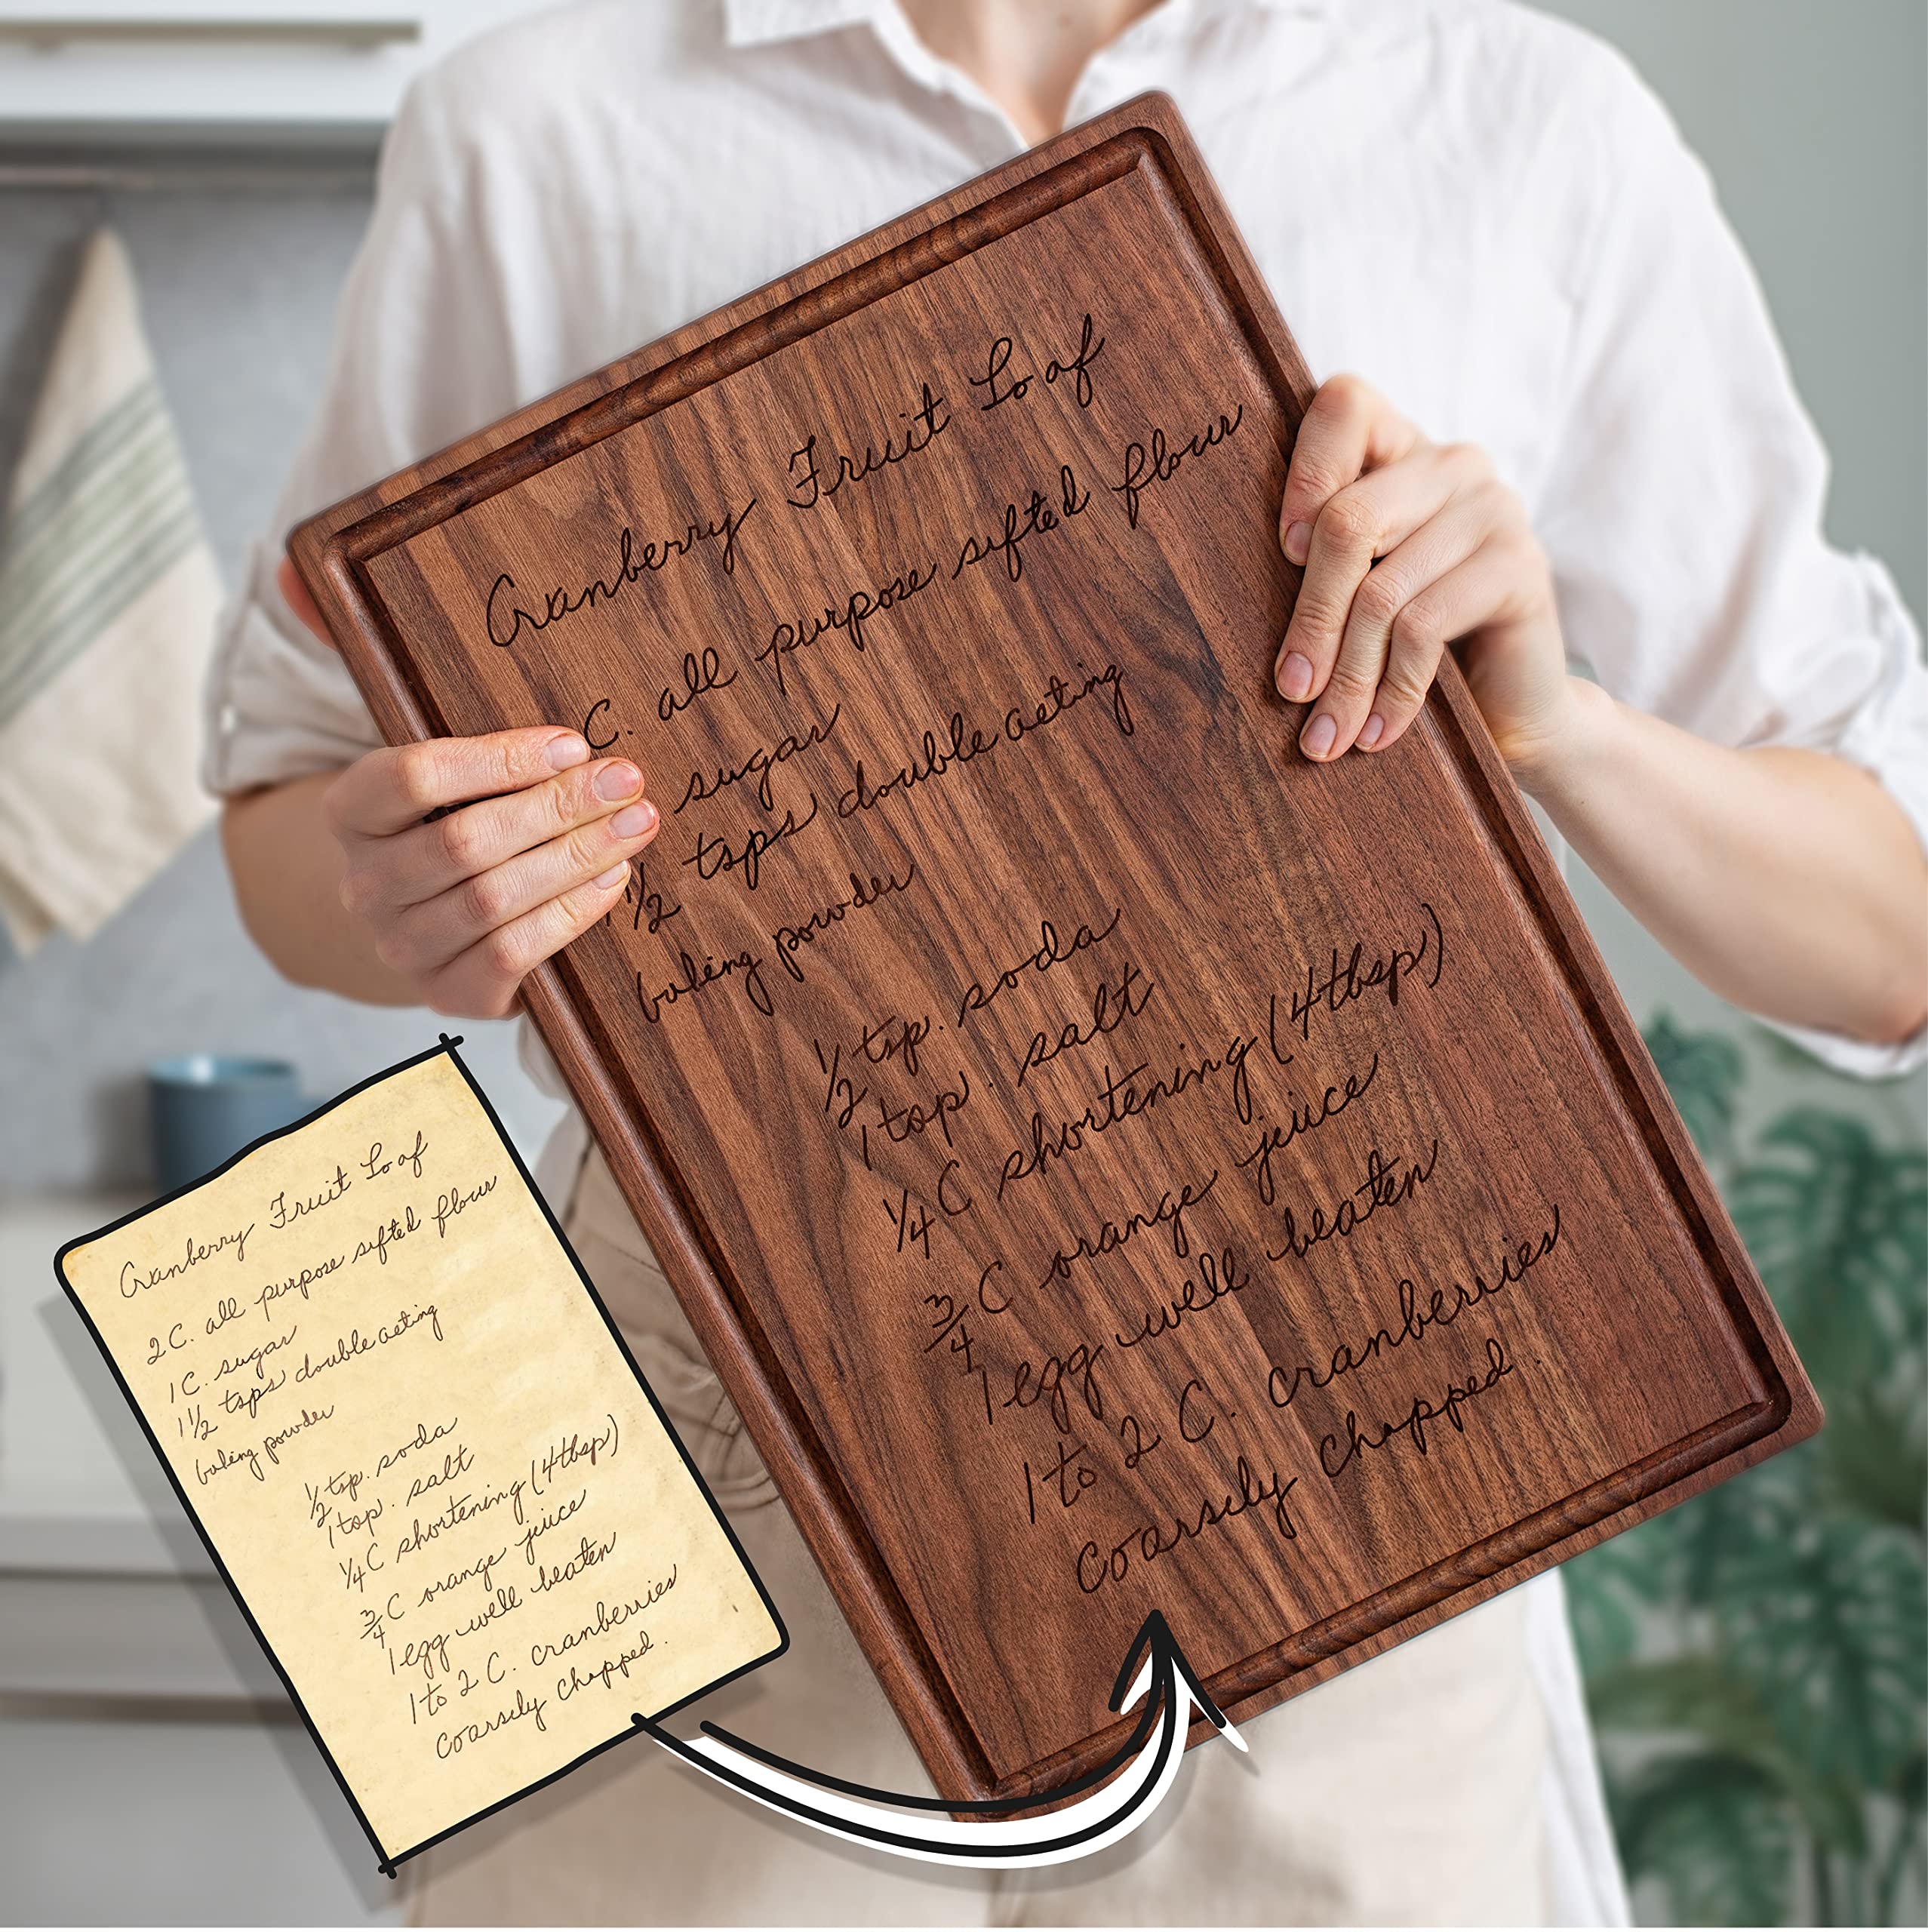 Cranberry Fruit Loaf
C. all purpose sifted flour
sugar
1 1/2 tsps double acting
baking powder
1/2 tsp. soda
1 tsp. salt
1/4 C shortening (4tbsp)
3/4 C orange jeuce
1 egg well beaten
1 to 2 C. cranberries
coarsely chopped.
Cranberry Fruit Loaf
2 C. all purpose sifted flour
1 C. sugar
1 1/2 tsps double acting
baking powder
1/2 tsp. soda
1 tsp. salt
1/4 C shortening (4tbsp)
3/4 C orange jeuce
1 egg well beaten
1 to 2 C. cranberries
coarsely chopped.